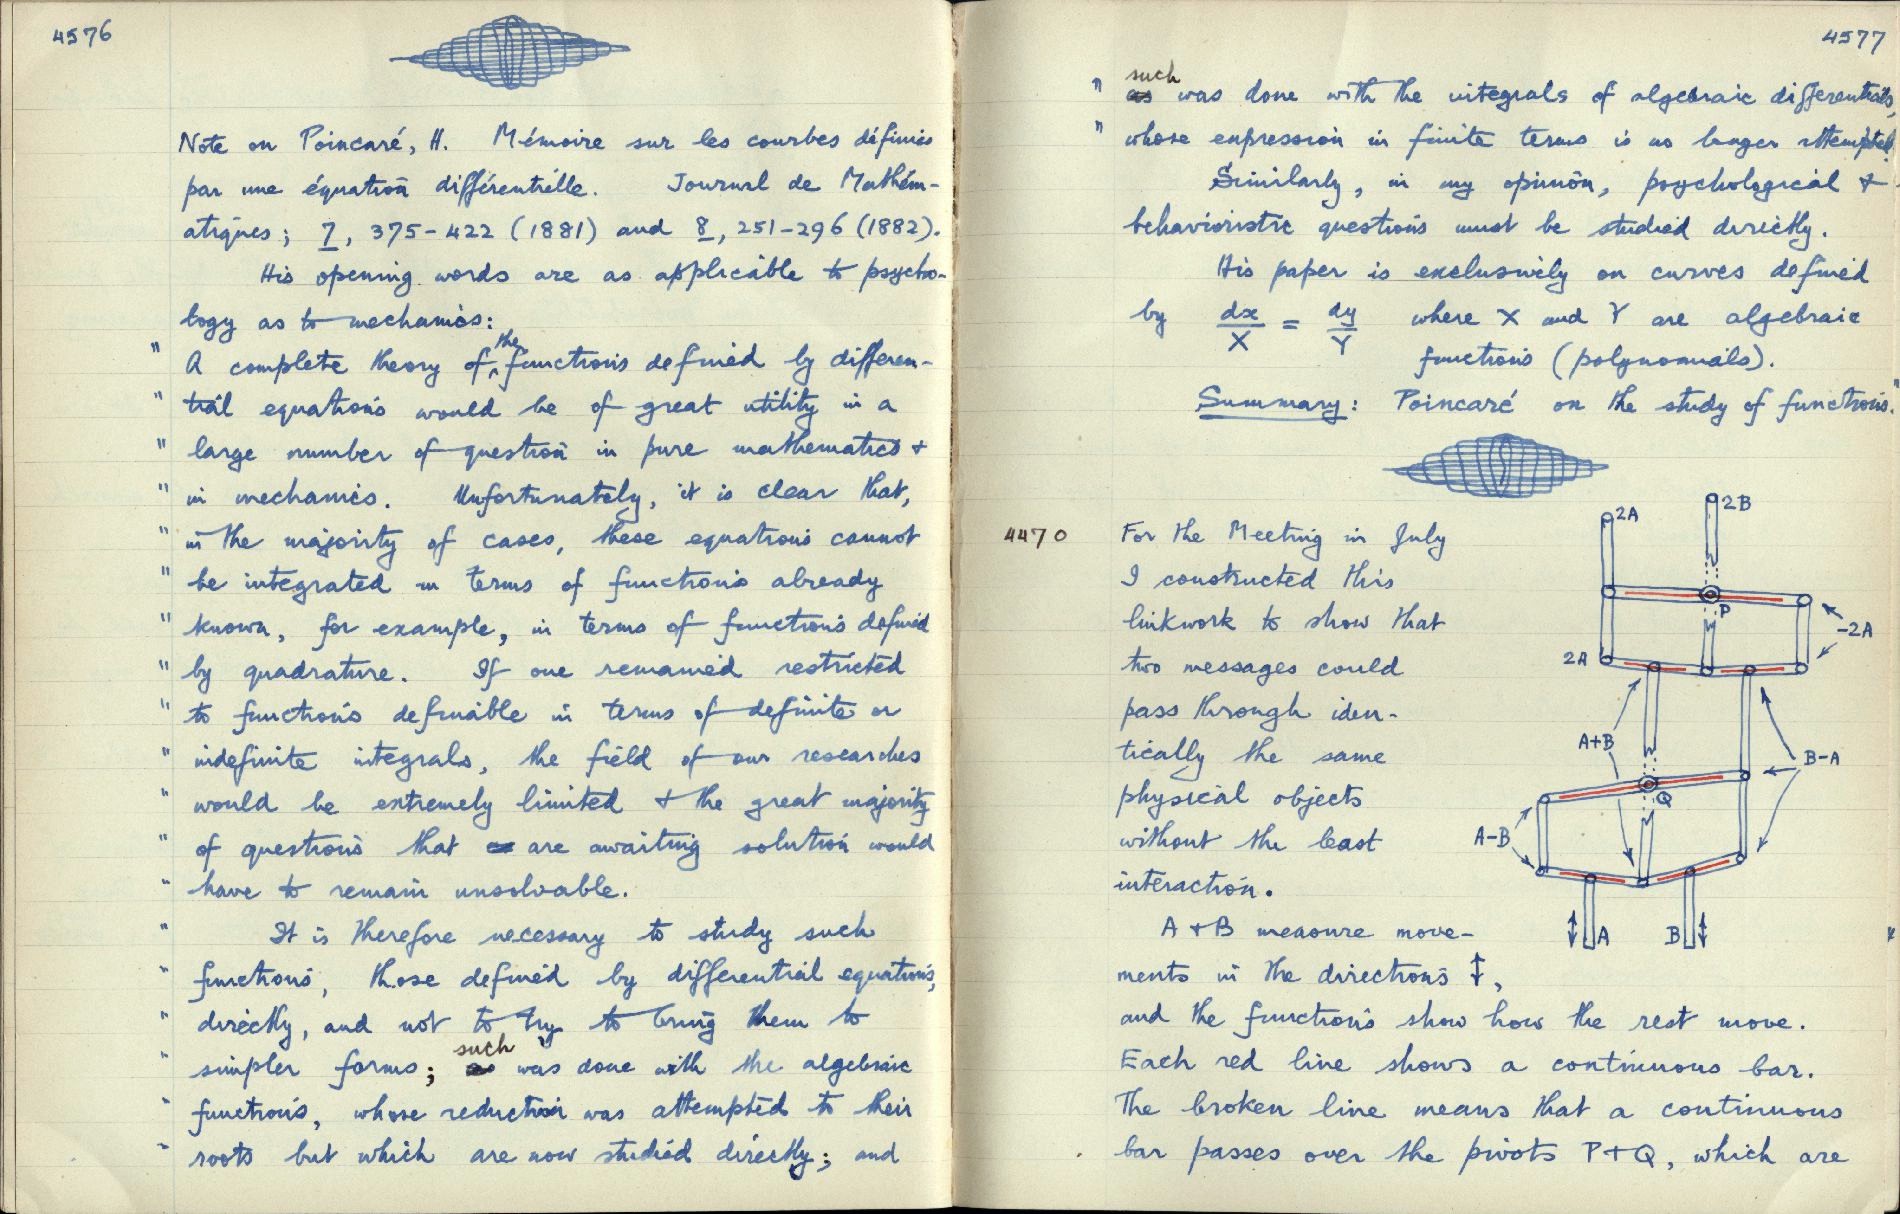 4576
Note on Poincaré, H. Mémoire sur les courbes définies
par une équation différentielle. Journal de Mathém-
atiques; 7, 375-422 (1881) and 8, 251-296 (1882).
His opening words are as applicable to psycho-
logy as to mechanics:
" A complete theory of the functions defined by differen-
" tial equations would be of great utility in a
" large number of question in pure mathematics +
" in mechanics. Unfortunately, it is clear that,
" in the majority of cases, these equations cannot
" be integrated in terms of functions already
" known, for example, in terms of functions defined
" by quadrature. If one remained restricted
" to functions definable in terms of definite or
" indefinite integrals, the field of our researches
" would be extremely limited + the great majority
" of questions that are awaiting solution would
" have to remain unsolvable.
" It is therefore necessary to study such
" functions, those defined by differential equations,
" directly, and not to try to bring them to
" simpler forms; such was done with the algebraic
" functions, whose reduction was attempted to their
" roots but which are now studied directly; and
4577
" such was done with the integrals of algebraic differentials,
" whose expression in finite terms is no longer attempted."
Similarly, in my opinion, psychological +
behavioristic questions must be studied directly.
His paper is exclusively on curves defined
by dx/X = dy/Y where X and Y are algebraic
functions (polynomials).
Summary: Poincaré on the study of functions.
4470
For the Meeting in July
I constructed this
linkwork to show that
two messages could
pass through iden-
tically the same
physical objects
without the least
interaction.
A + B measure move-
ments in the directions ↕,
and the functions show how the rest move.
Each red line shows a continuous bar.
The broken line means that a continuous
bar passes over the pivots P+Q, which are
2A
2B
P
-2A
2A
A+B
B-A
Q
A-B
A
B